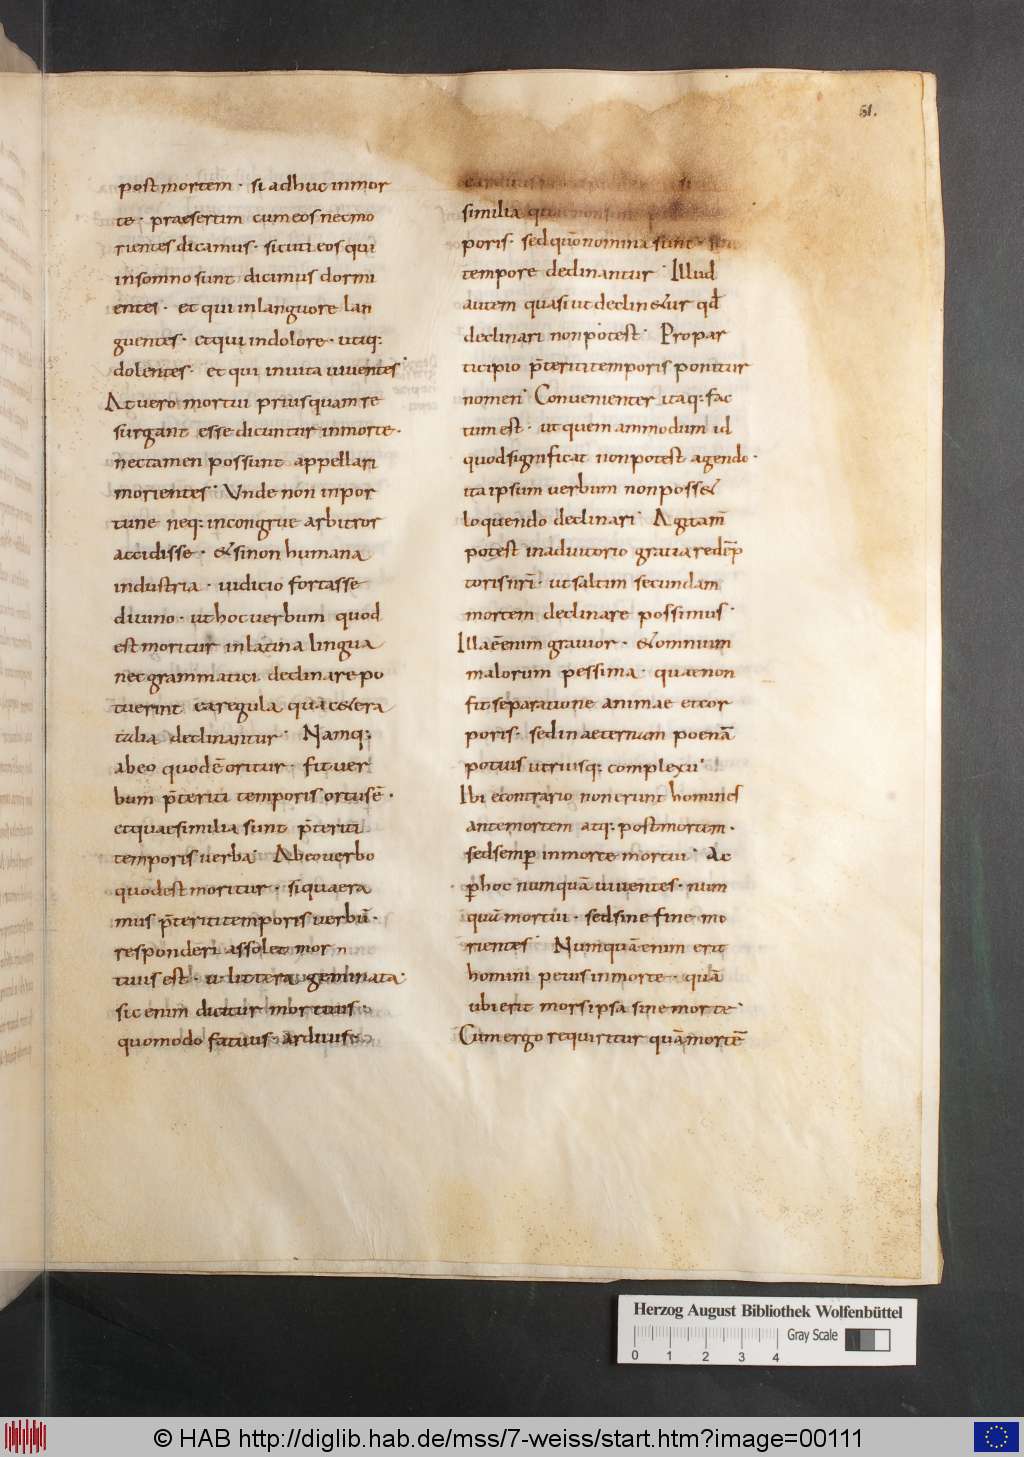 51.
post mortem · si adhuc in mor
te · praesertim cum eos nec mo
rientes dicamus · sicuti eos qui
in somno sunt dicimus dormi
entes · et qui in languore lan
guentes · et qui in dolore · utiq:
dolentes · et qui in uita uiuentes ·
At uero mortui priusquam re
surgant esse dicuntur in morte ·
nec tamen possunt appellari
morientes · Unde non inpor
tune neq: incongrue arbitror
accidisse · & si non humana
industria · iudicio fortasse
diuino · ut hoc uerbum quod
est moritur in latina lingua
nec grammatici declinare po
tuerint ea regula qua c&era
talia declinantur · Namq:
ab eo quod ē oritur · fit uer
bum p̄teriti temporis ortus ē ·
et quae similia sunt p̄teriti
temporis uerba · Ab eo uerbo
quod est moritur · si quaera
mus p̄teriti temporis uerbū ·
responderi assolet mor
tuus est · u littera geminata ·
sic enim dicitur mortuus
quomodo fatuus · arduus
si
similia
poris · sed quō nomina sunt ·
tempore declinantur · Illud
autem quasi ut declin&ur qd̄
declinari non potest · Pro par
ticipio p̄teriti temporis ponitur
nomen · Conuenienter itaq: fac
tum est · ut quem ammodum id
quod significat non potest agendo ·
ita ipsum uerbum non poss&
loquendo declinari · Agi tam̄
potest in adiutorio gratia redēp
toris nr̄i · ut saltim secundam
mortem declinare possimus ·
Illa ē enim grauior · & omnium
malorum pessima · quae non
fit separatione animae et cor
poris · sed in aeternam poenā
potius utriusq: complexu ·
Ibi e contrario non erunt homines
ante mortem atq: post mortem ·
sed semp̄ in morte mortui · Ac
p̄ hoc numquā uiuentes · num
quā mortui · sed sine fine mo
rientes · Numquā enim erit
homini peius in morte · quā
ubi erit mors ipsa sine morte ·
Cum ergo requiritur quā mortē
Herzog August Bibliothek Wolfenbüttel
Gray Scale
0 1 2 3 4
© HAB http://diglib.hab.de/mss/7-weiss/start.htm?image=00111